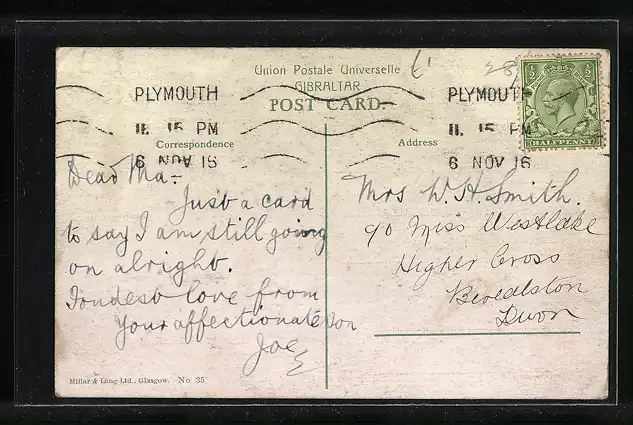 Union Postale Universelle
GIBRALTAR
POST CARD.
PLYMOUTH
11. 15 PM
6 NOV 16
PLYMOUTH
11. 15 PM
6 NOV 16
HALFPENNY
Correspondence
Address
Dear Ma:-
Just a card
to say I am still going
on alright.
Fondest love from
Your affectionate son
Joe
Mrs W. H. Smith.
℅ Miss Westlake
Higher Cross
Berealston
Devon
Millar & Lang Ltd., Glasgow. No 35